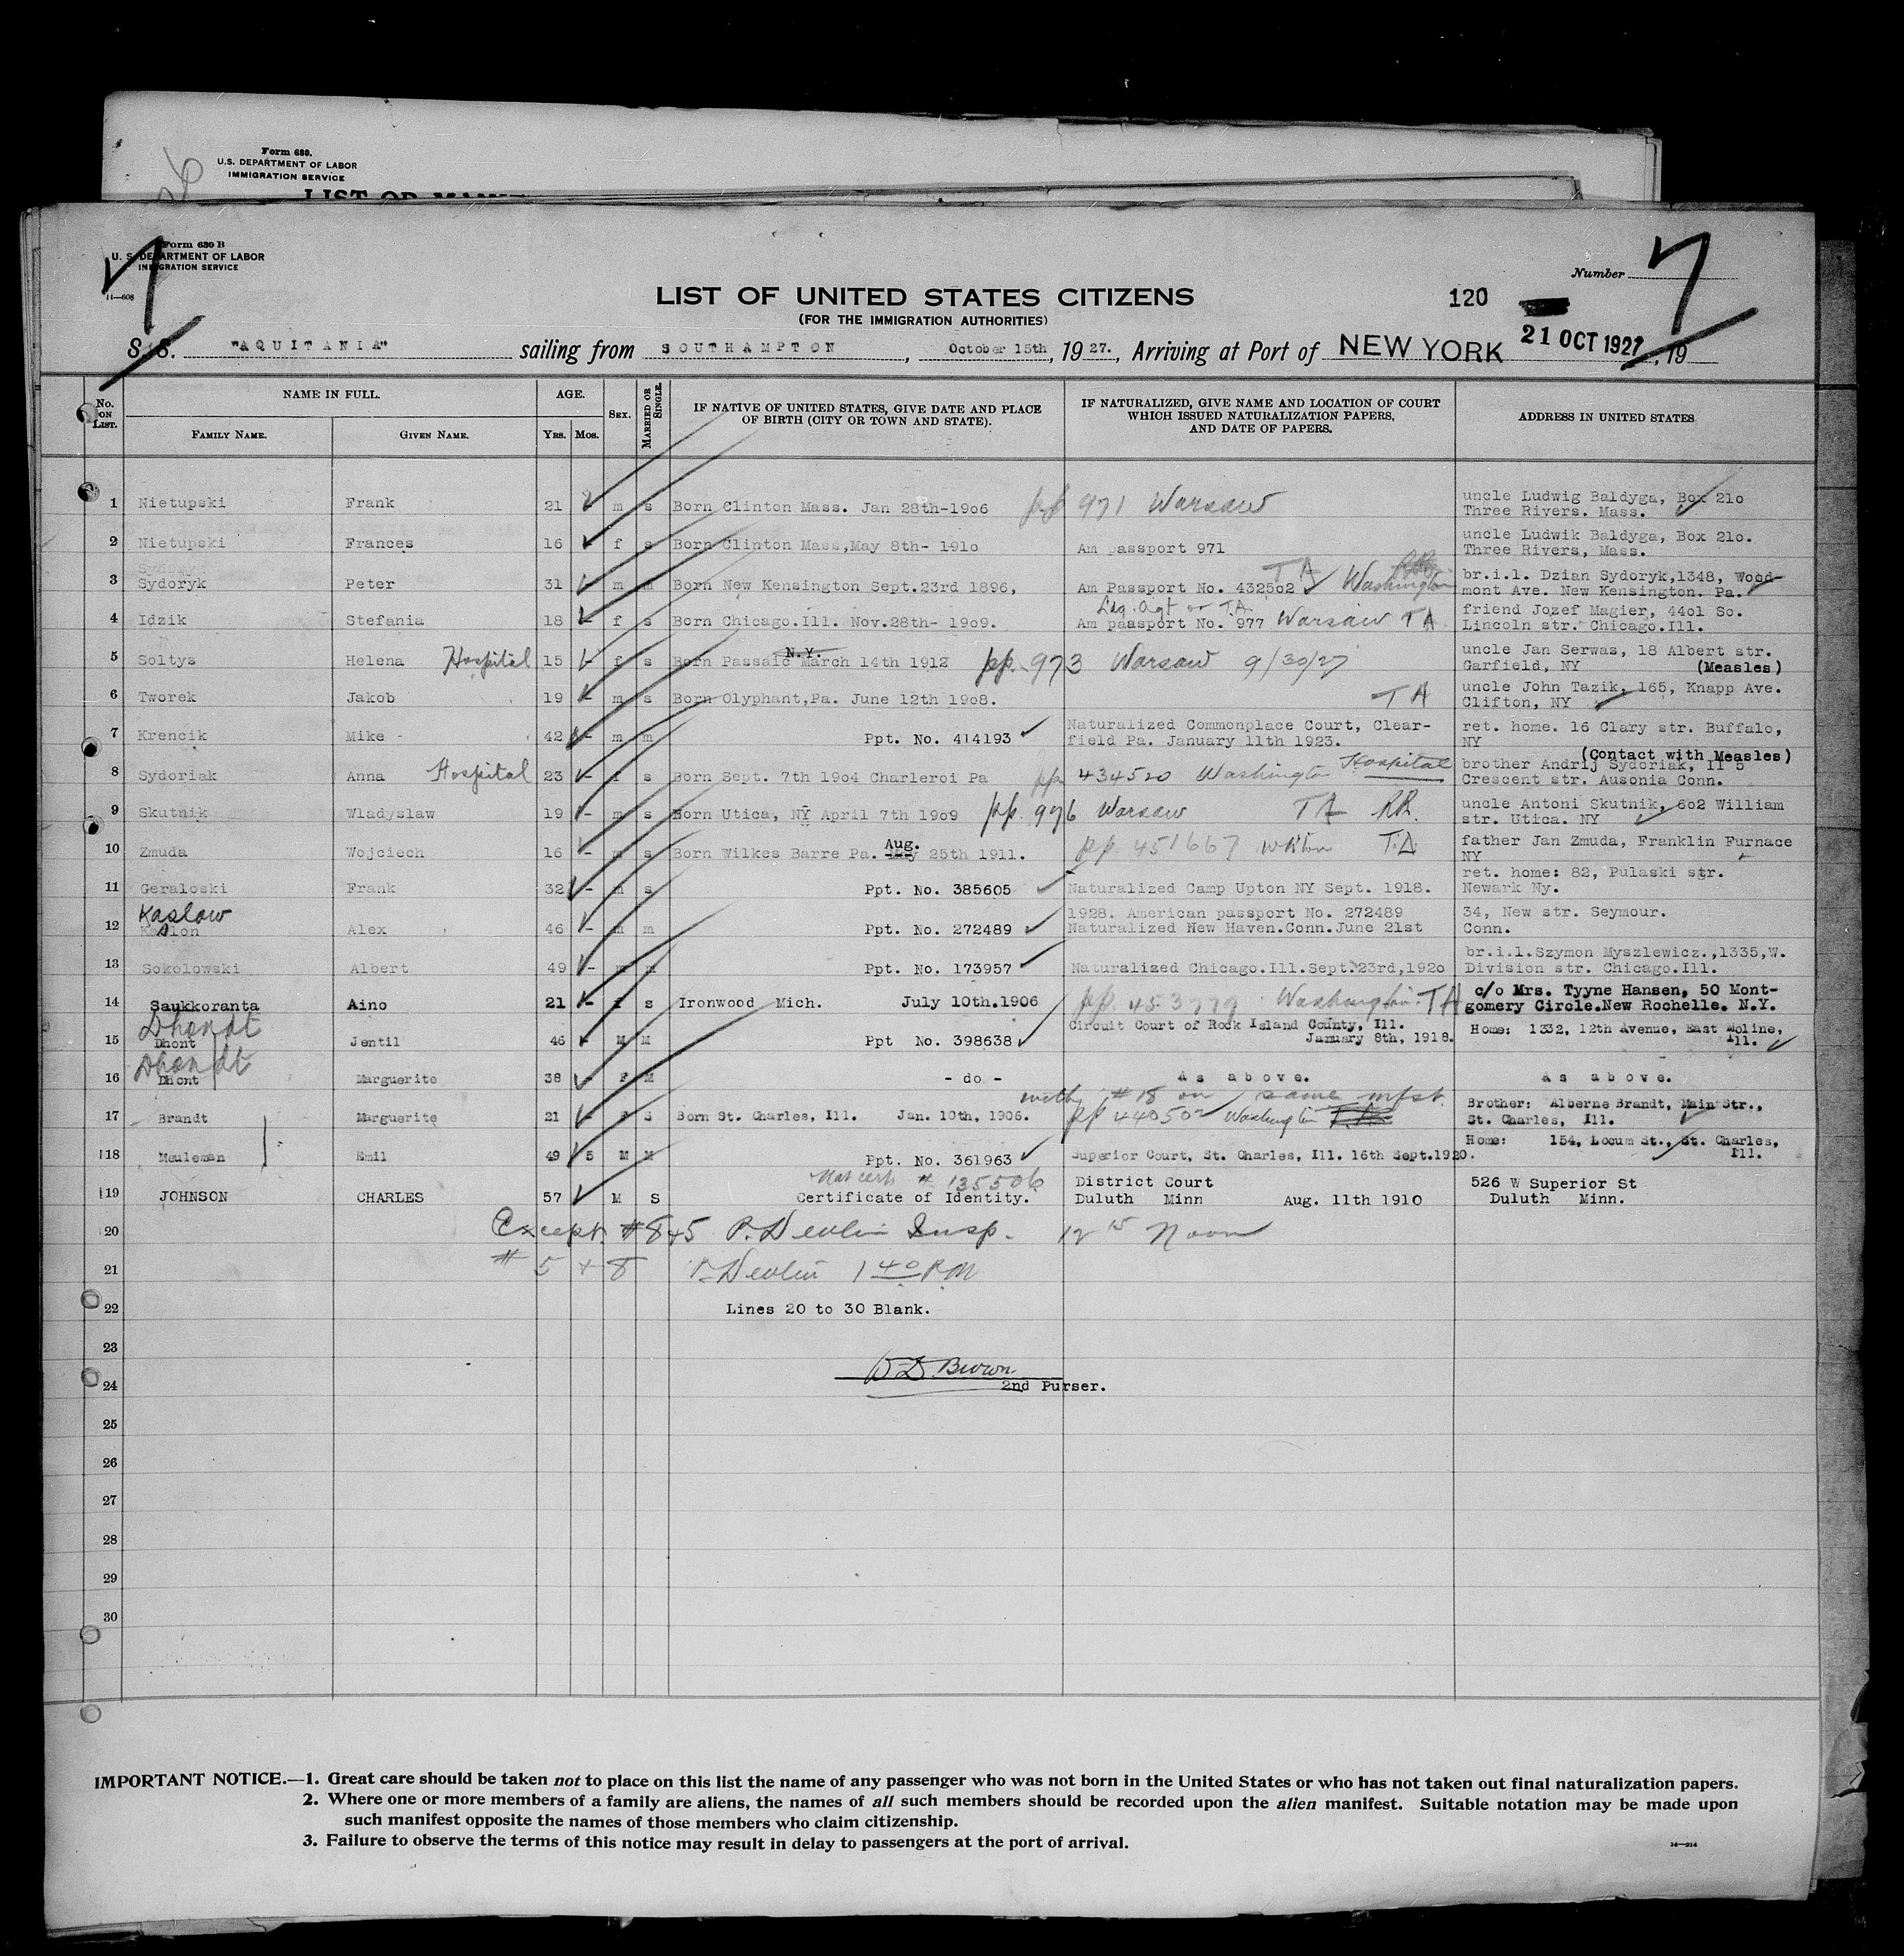 Form 680.
U.S. DEPARTMENT OF LABOR
IMMIGRATION SERVICE
Form 630 B
U. S. DEPARTMENT OF LABOR
IMMIGRATION SERVICE
11—608
7
Number 7
LIST OF UNITED STATES CITIZENS
120
(FOR THE IMMIGRATION AUTHORITIES)
S. S. "AQUITANIA" sailing from SOUTHAMPTON, October 15th, 1927., Arriving at Port of NEW YORK 21 OCT 1927, 19
No. ON LIST. NAME IN FULL. AGE. SEX. MARRIED OR SINGLE. IF NATIVE OF UNITED STATES, GIVE DATE AND PLACE OF BIRTH (CITY OR TOWN AND STATE). IF NATURALIZED, GIVE NAME AND LOCATION OF COURT WHICH ISSUED NATURALIZATION PAPERS, AND DATE OF PAPERS. ADDRESS IN UNITED STATES
FAMILY NAME. GIVEN NAME. YRS. MOS.
1 Nietupski Frank 21 m s Born Clinton Mass. Jan 28th-19o6 pp 971 Warsaw uncle Ludwig Baldyga, Box 21o
Three Rivers. Mass.
2 Nietupski Frances 16 - f s Born Clinton Mass,May 8th- 191o Am passport 971 uncle Ludwik Baldyga, Box 21o.
Three Rivers, Mass.
3 Sydoryk Peter 31 - m m Born New Kensington Sept.23rd 1896, Am Passport No. 4325o2 TA Washington br.i.l. Dzian Sydoryk,1348, Wood-
mont Ave. New Kensington. Pa.
4 Idzik Stefania 18 - f s Born Chicago.Ill. Nov.28th- 19o9. Am paasport No. 977 Warsaw TA friend Jozef Magier, 44o1 So.
Lincoln str. Chicago.Ill.
5 Soltys Helena Hospital 15 - f s Born Passaic N.Y. March 14th 1912 pp. 973 Warsaw 9/30/27 uncle Jan Serwas, 18 Albert str.
Garfield, NY (Measles)
6 Tworek Jakob 19 - m s Born Olyphant,Pa. June 12th 19o8. TA uncle John Tazik, 165, Knapp Ave.
Clifton, NY
7 Krencik Mike - 42 - m m Ppt. No. 414193 Naturalized Commonplace Court, Clear-
field Pa. January 11th 1923. ret. home. 16 Clary str. Buffalo,
NY
(Contact with Measles)
8 Sydoriak Anna Hospital 23 - f s Born Sept. 7th 19o4 Charleroi Pa pp 434520 Washington Hospital brother Andrij Sydoriak, II 5
Crescent str. Ausonia Conn.
9 Skutnik Wladyslaw 19 - m s Born Utica, NY April 7th 19o9 pp. 976 Warsaw TA RR. uncle Antoni Skutnik, 6o2 William
str. Utica. NY
10 Zmuda Wojciech 16 - m s Born Wilkes Barre Pa. Aug. 25th 1911. pp. 451667 TA father Jan Zmuda, Franklin Furnace
NY
11 Geraloski Frank 32 - m s Ppt. No. 385605 Naturalized Camp Upton NY Sept. 1918. ret. home: 82, Pulaski str.
Newark Ny.
12 Kaslow Alex 46 - m m Ppt. No. 272489 1928. American passport No. 272489
Naturalized New Haven.Conn.June 21st 34, New str. Seymour.
Conn.
13 Sokolowski Albert 49 - m m Ppt. No. 173957 Naturalized Chicago.Ill.Sept.23rd,192o br.i.l.Szymon Myszlewicz.,1335,W.
Division str. Chicago.Ill.
14 Saukkoranta Aino 21 - f s Ironwood Mich. July 10th.1906 pp. 453779 Washington. TA c/o Mrs. Tyyne Hansen, 50 Mont-
gomery Circle.New Rochelle. N.Y.
Dhondt
15 Dhont Jentil 46 - M M Ppt No. 398638 Circuit Court of Rock Island County, Ill.
January 8th, 1918. Home: 1332, 12th Avenue, East Moline,
Ill.
Dhondt
16 Dhont Marguerite 38 - F M - do - As above. As above.
with #18 on same mfst.
17 Brandt Marguerite 21 - F S Born St. Charles, Ill. Jan. 10th, 1906. pp 440502 Washington Brother: Alberne Brandt, Main Str.,
St. Charles, Ill.
18 Meuleman Emil 49 5 M M Ppt. No. 361963 Superior Court, St. Charles, Ill. 16th Sept.1920. Home: 154, Locum St., St. Charles,
Ill.
Nat cert # 135506
19 JOHNSON CHARLES 57 M S Certificate of Identity. District Court
Duluth Minn Aug. 11th 1910 526 W Superior St
Duluth Minn.
20 Except #8+5 P. Devlin Insp. 12 15 Noon
21 # 5 + 8 P. Devlin 1 40 PM
22 Lines 20 to 30 Blank.
23
D.D. Brown
24 2nd Purser.
25
26
27
28
29
30
IMPORTANT NOTICE.—1. Great care should be taken not to place on this list the name of any passenger who was not born in the United States or who has not taken out final naturalization papers.
2. Where one or more members of a family are aliens, the names of all such members should be recorded upon the alien manifest. Suitable notation may be made upon
such manifest opposite the names of those members who claim citizenship.
3. Failure to observe the terms of this notice may result in delay to passengers at the port of arrival.
14—214